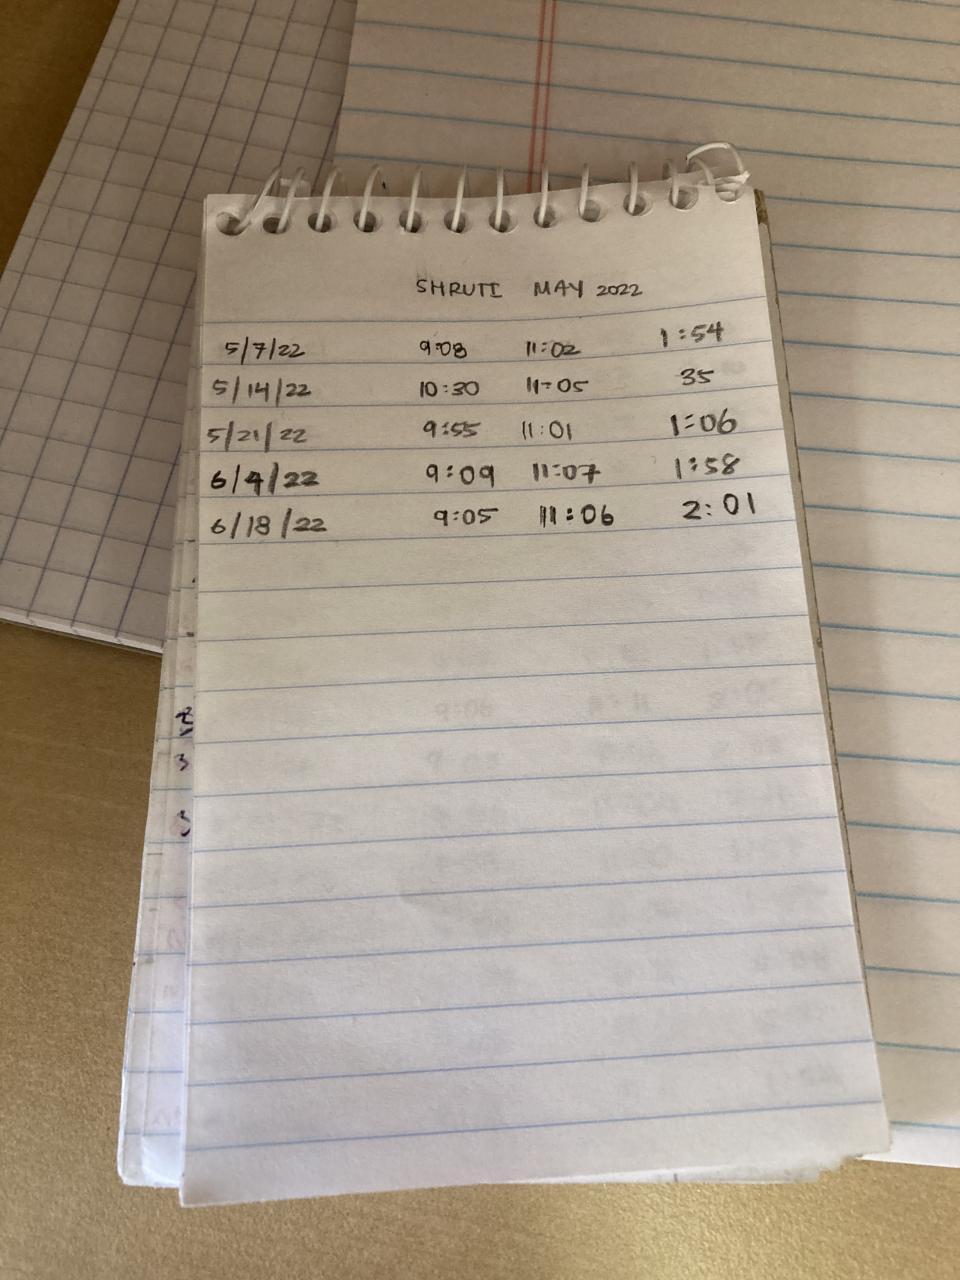 SHRUTI MAY 2022
5/7/22 9:08 11:02 1:54
5/14/22 10:30 11:05 35
5/21/22 9:55 11:01 1:06
6/4/22 9:09 11:07 1:58
6/18/22 9:05 11:06 2:01